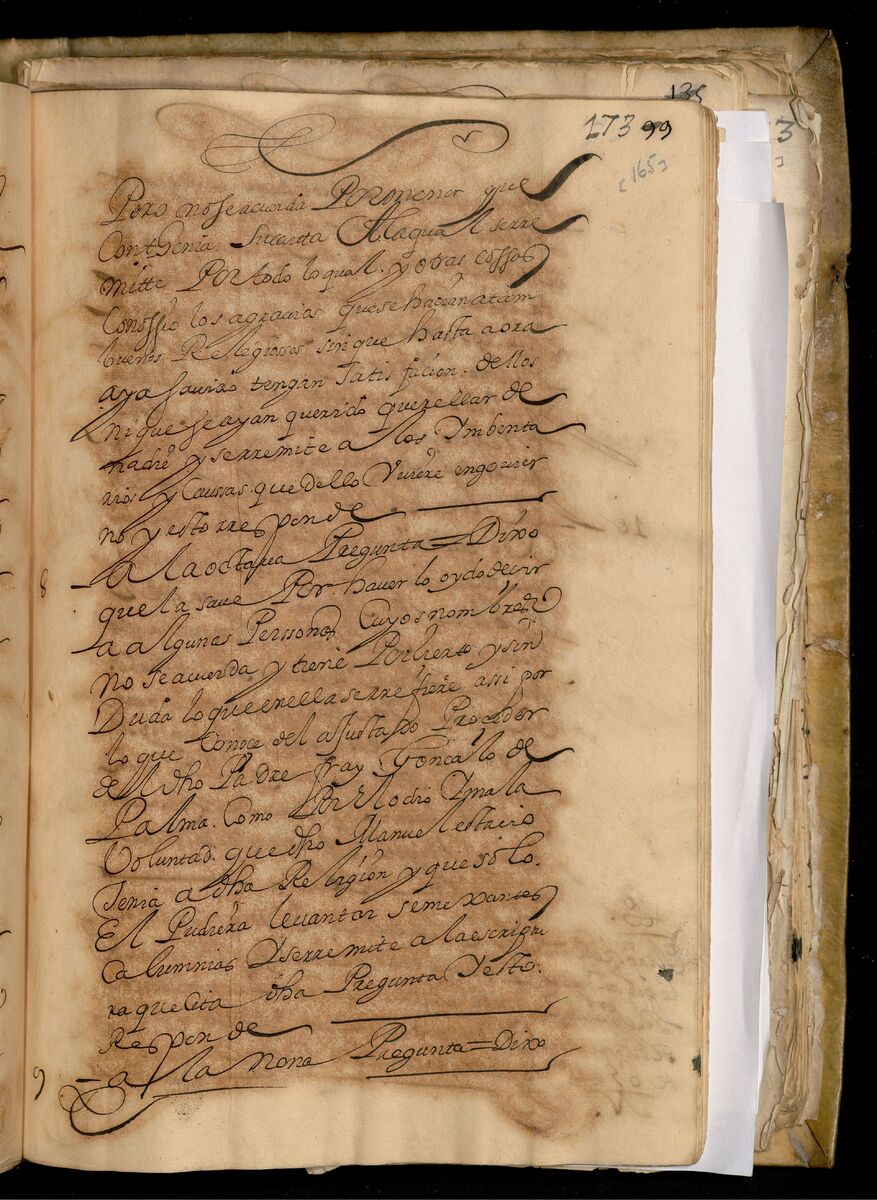 135
173 99
[165]
3
Pero no se acuerda Pormenor que
Contthenia su carta A la qual se rre
mitte Por todo lo qual. y otras cossas
Consstto los agravios que se hacian a tam
buenos Religiossos sin que hasta aora
aya savido tengan satisfacion. dellos
ni que se ayan querido querellar de
nadie y se rremite a los Ymbenta
rios y Caussas que dello Vuiere en govier
no y esto rresponde
8 - a la octaua Pregunta = Dixo
que la saue Por haver lo oydo decir
a algunas Perssonas Cuyos nombres
no se acuerda y tiene Por cierto y sin
Duda lo que en ella se rrefiere assi por
lo que Conoce del ajustado Proceder
del dho Padre fray Gonçalo de
Palma. Como Por El odio Y mala
Voluntad. que dho Manuel estacio
Tenia a dha Religion y que solo.
El Pudiera levantar semexantes
Calumnias Y se rremite a la escriptu
ra que Cita dha Pregunta Y esto.
Responde
9 - a la nona Pregunta = Dixo